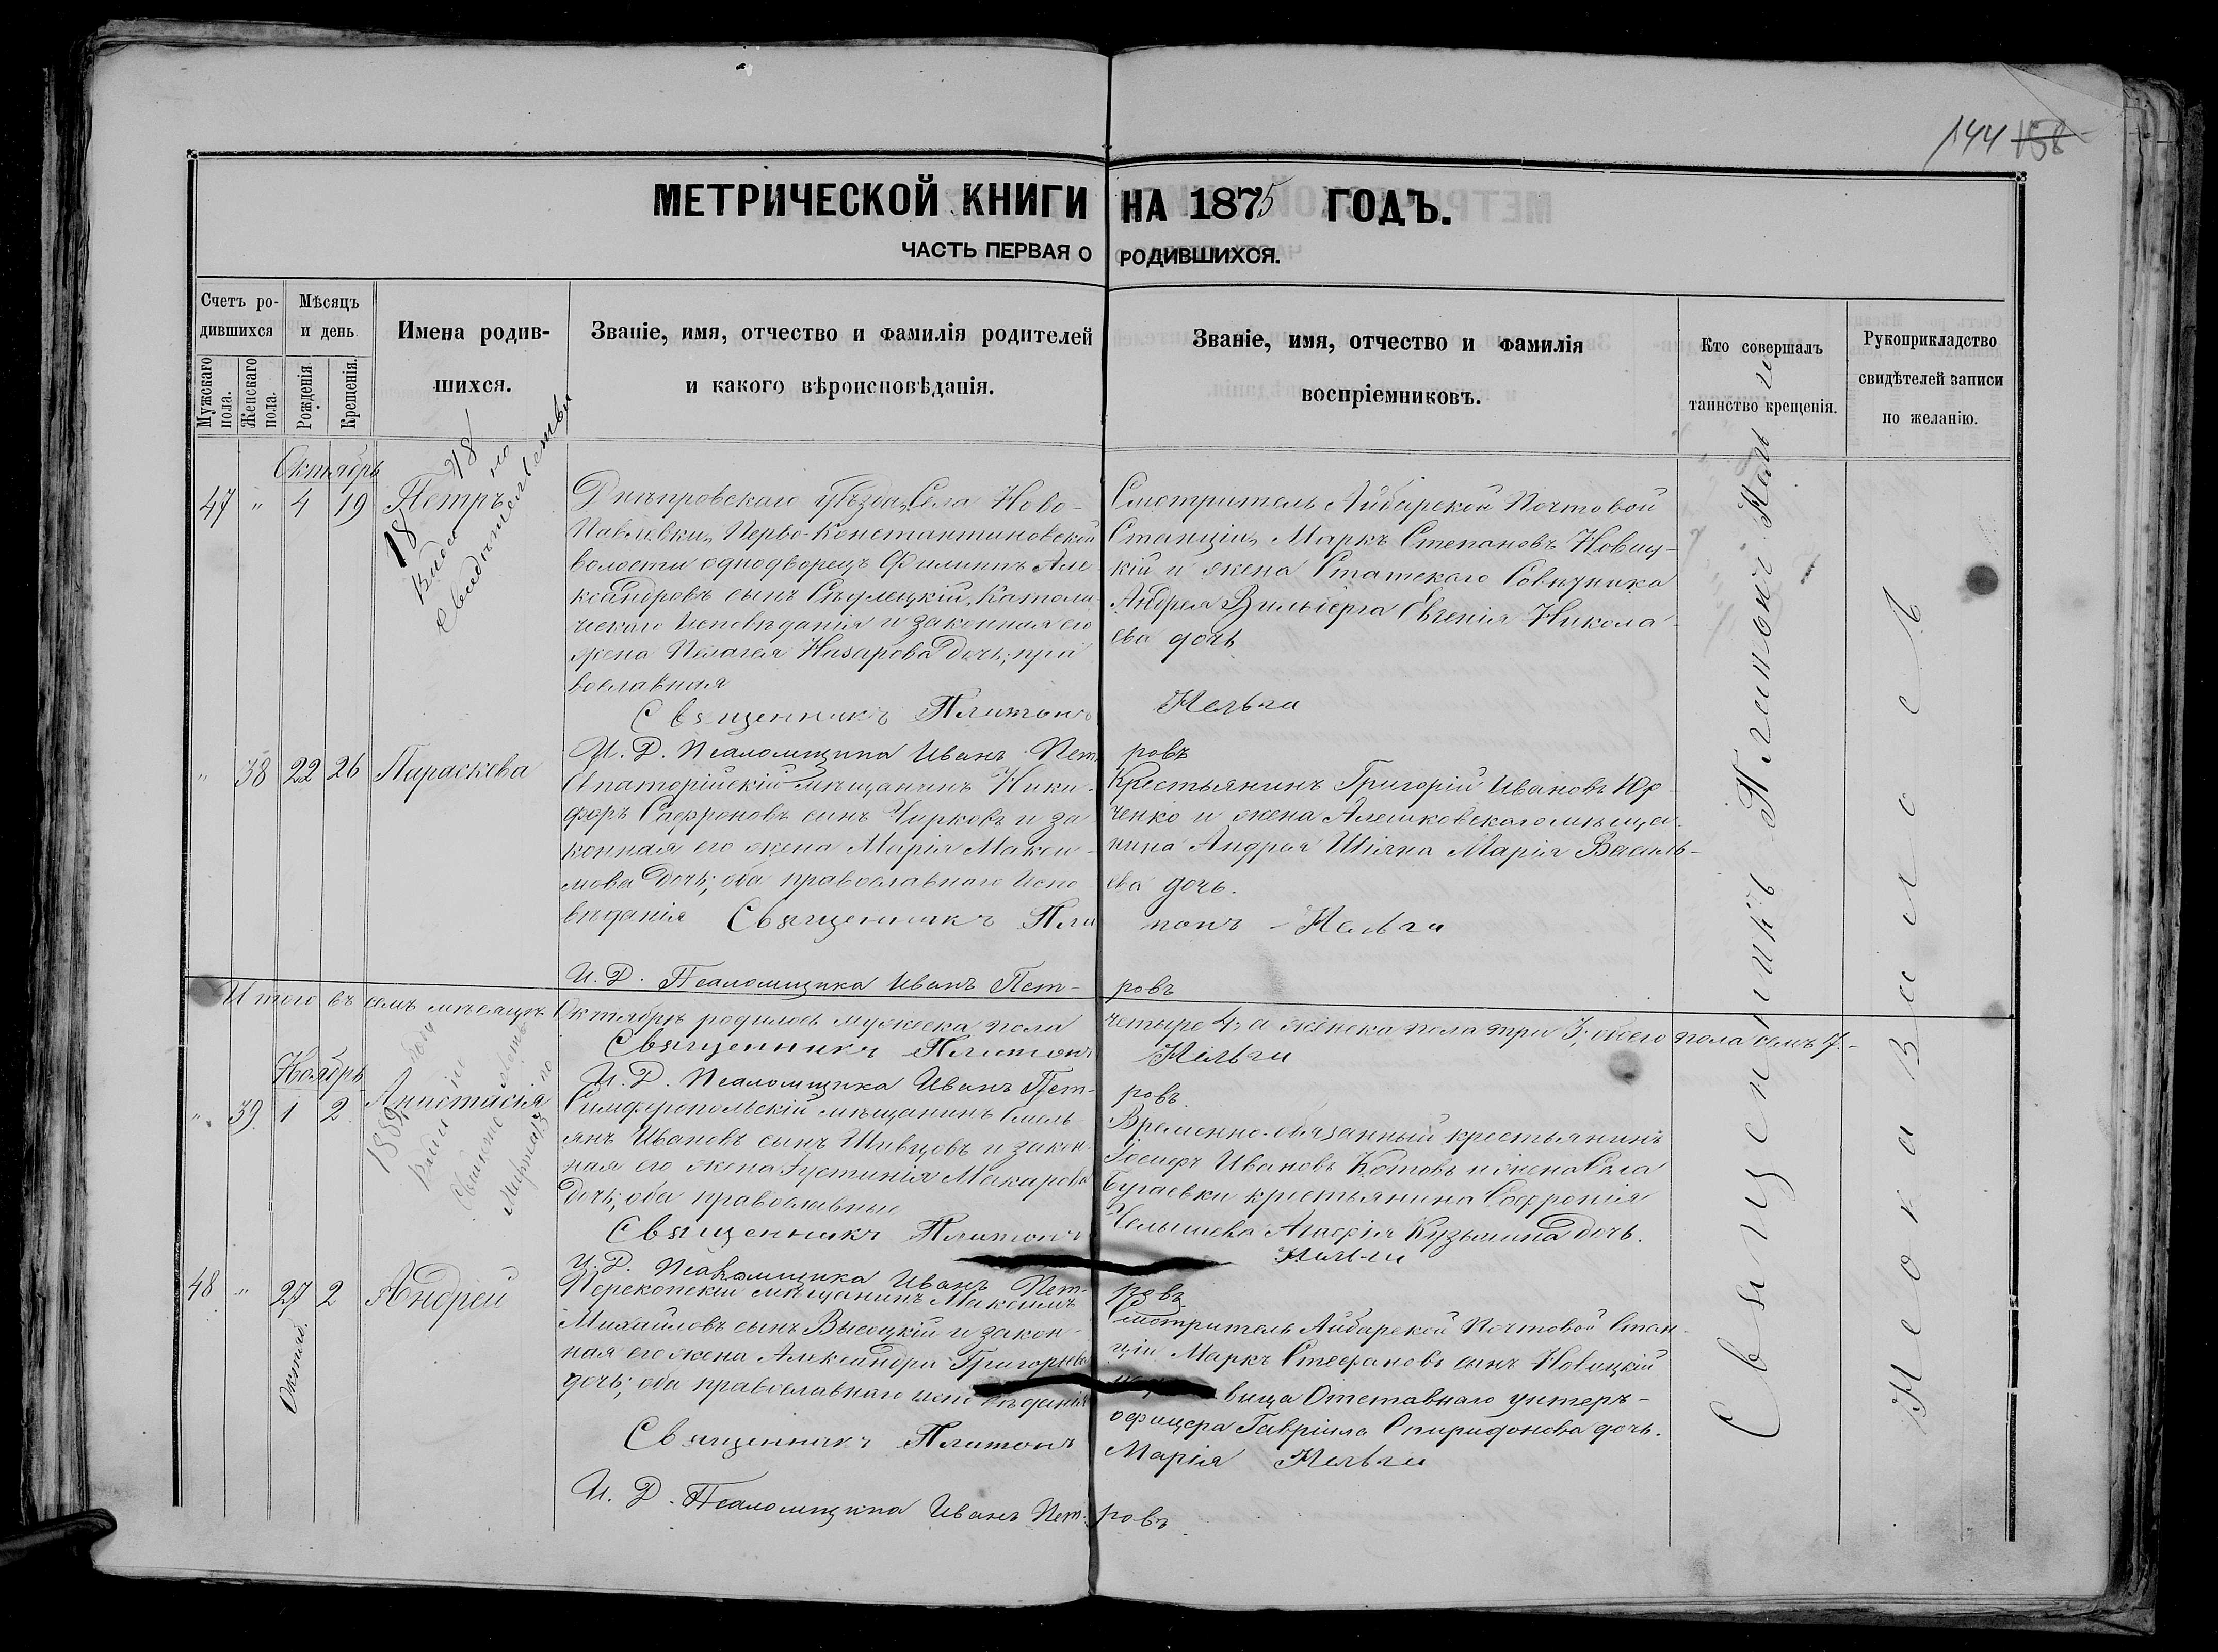 144 158
МЕТРИЧЕСКОЙ КНИГИ НА 1875 ГОДЪ.
ЧАСТЬ ПЕРВАЯ О РОДИВШИХСЯ.
Счетъ ро-
дившихся
Мужскаго пола.
Женскаго пола.
Мѣсяцъ
и день
Рожденія.
Крещенія.
Имена родив-
шихся.
Званіе, имя, отчество и фамилія родителей
и какого вѣроисповѣданія.
Званіе, имя, отчество и фамилія
воспріемниковъ.
Кто совершалъ
таинство крещенія.
Рукоприкладство
свидѣтелей записи
по желанію.
Октябрь
47 " 4 19 Петръ
Днѣпровскаго уѣзда, Села Ново-
Павловки, Перво-Константиновской
волости однодворецъ Филиппъ Але-
ксандровъ сынъ Католи-
ческаго Исповѣданія и законная его
жена Пелагея Назарова дочь; пра
вославная
Священникъ Платонъ
И. Д. Псаломщика Иванъ Пет
Смотритель Айбарской Почтовой
Станціи, Маркъ Степановъ Новиц-
кій и жена Статскаго Совѣтника
Андрея Вильберга Евгенія Никола-
ева дочь
Кельчи
ровъ
" 38 22 26 Параскева
Евпаторійскій мѣщанинъ Ники-
форъ Софроновъ сынъ Чирковъ и за
конная его жена Марія Макси-
мова дочь; оба православнаго Испо
вѣданія Священникъ Пла
И. Д. Псаломщика Иванъ Пет-
Крестьянинъ Григорій Ивановъ Юр-
ченко и жена Алешковскаго мѣща-
нина Андрея Марія Василь-
ева дочь.
тонъ Кельчи
ровъ
Итого въ семъ мѣсяцѣ Октябрѣ родилось мужеска пола четыре 4, а женска пола три 3, обоего пола семь 7.-
Священникъ Платонъ Кельчи
И. Д. Псаломщика Иванъ Пет- ровъ
Ноябрь
" 39 1 2 Анастасія
Симферопольскій мѣщанинъ Емель
янъ Ивановъ сынъ Шевцовъ и закон-
ная его жена Густинія Макарова
дочь; оба православные
Священникъ Платонъ
И. Д. Псаломщика Иванъ Пет-
Временно-обязанный крестьянинъ
Іосифъ Ивановъ Котовъ и жена Села
Бугаевки крестьянина Софронія
Челышева Агафія Кузьмина дочь.
Кельчи
ровъ
48 " 27 2 Андрей
Октяб.
Перекопскій мѣщанинъ Максимъ
Михайловъ сынъ Высоцкій и закон-
ная его жена Александра Григорьева
дочь; оба православнаго исповѣданія
Священникъ Платонъ
И. Д. Псаломщика Иванъ Пет-
Смотритель Айбарской Почтовой Стан-
ціи Маркъ Стефановъ сынъ Новицкій
вица Отставнаго унтеръ-
офицера Гавріила Спиридонова дочь.
Марія Кельчи
ровъ
Священникъ Платонъ Кельчи